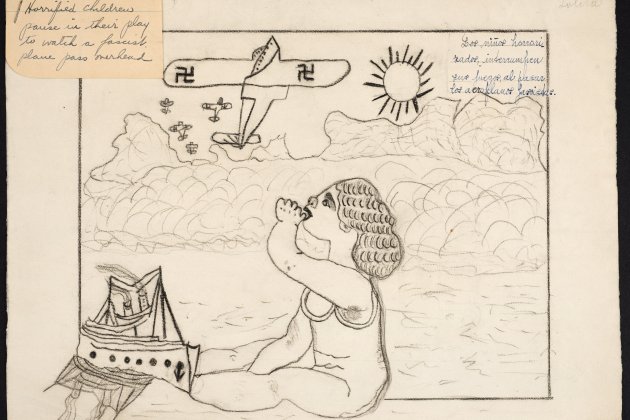 Horrified children
pause in their play
to watch a fascist
plane pass overhead
Los niños horrori
zados, interrumpen
sus juegos, al pasar
los aeroplanos fascistas.